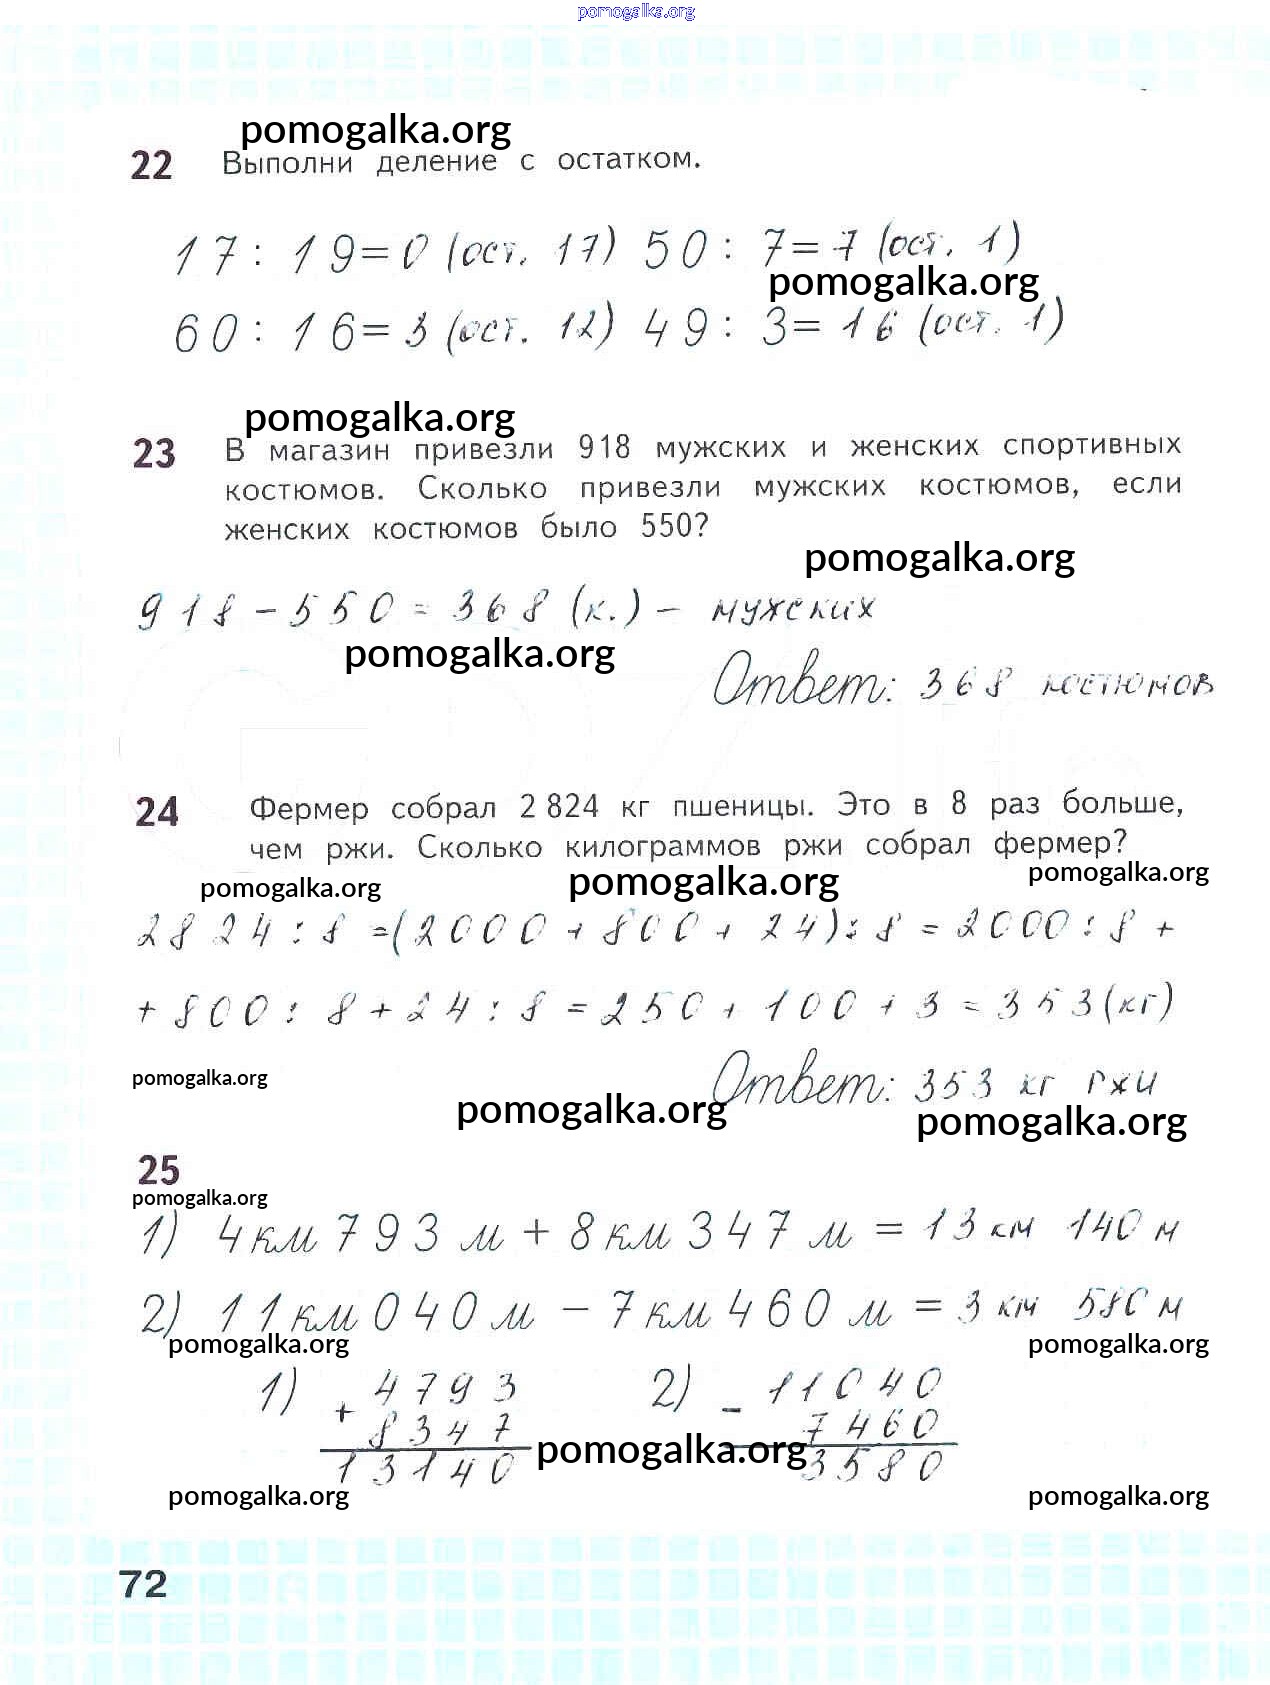 pomogalka.org
pomogalka.org
22 Выполни деление с остатком.
17 : 19 = 0 (ост. 17) 50 : 7 = 7 (ост. 1)
pomogalka.org
60 : 16 = 3 (ост. 12) 49 : 3 = 16 (ост. 1)
pomogalka.org
23 В магазин привезли 918 мужских и женских спортивных
костюмов. Сколько привезли мужских костюмов, если
женских костюмов было 550?
pomogalka.org
918 - 550 = 368 (к.) - мужских
pomogalka.org
Ответ: 368 костюмов
24 Фермер собрал 2 824 кг пшеницы. Это в 8 раз больше,
чем ржи. Сколько килограммов ржи собрал фермер?
pomogalka.org pomogalka.org pomogalka.org
2824 : 8 = (2000 + 800 + 24) : 8 = 2000 : 8 +
+ 800 : 8 + 24 : 8 = 250 + 100 + 3 = 353 (кг)
pomogalka.org
Ответ: 353 кг ржи
pomogalka.org pomogalka.org
25
pomogalka.org
1) 4 км 793 м + 8 км 347 м = 13 км 140 м
2) 11 км 040 м - 7 км 460 м = 3 км 580 м
pomogalka.org pomogalka.org
1) + 4793 2) - 11040
8347 7460
pomogalka.org
13140 3580
pomogalka.org pomogalka.org
72